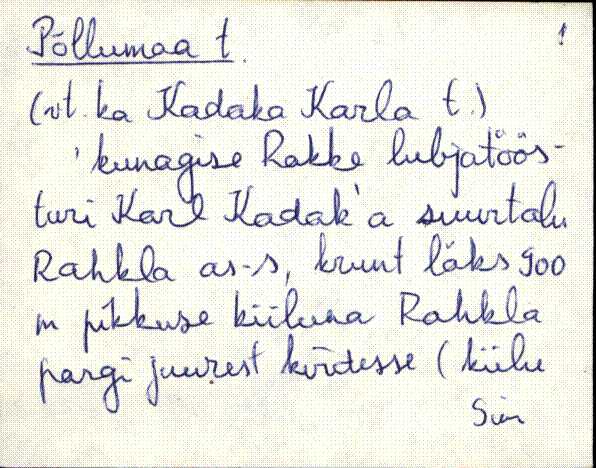 Põllumaa t. 1
(vt. ka Kadaka Karla t.)
'kunagise Rakke lubjatöös-
turi Karl Kadak'a suurtalu
Rahkla as-s, krunt läks 900
m pikkuse kiiluna Rahkla
pargi juurest kirdesse (kiilu
Sim